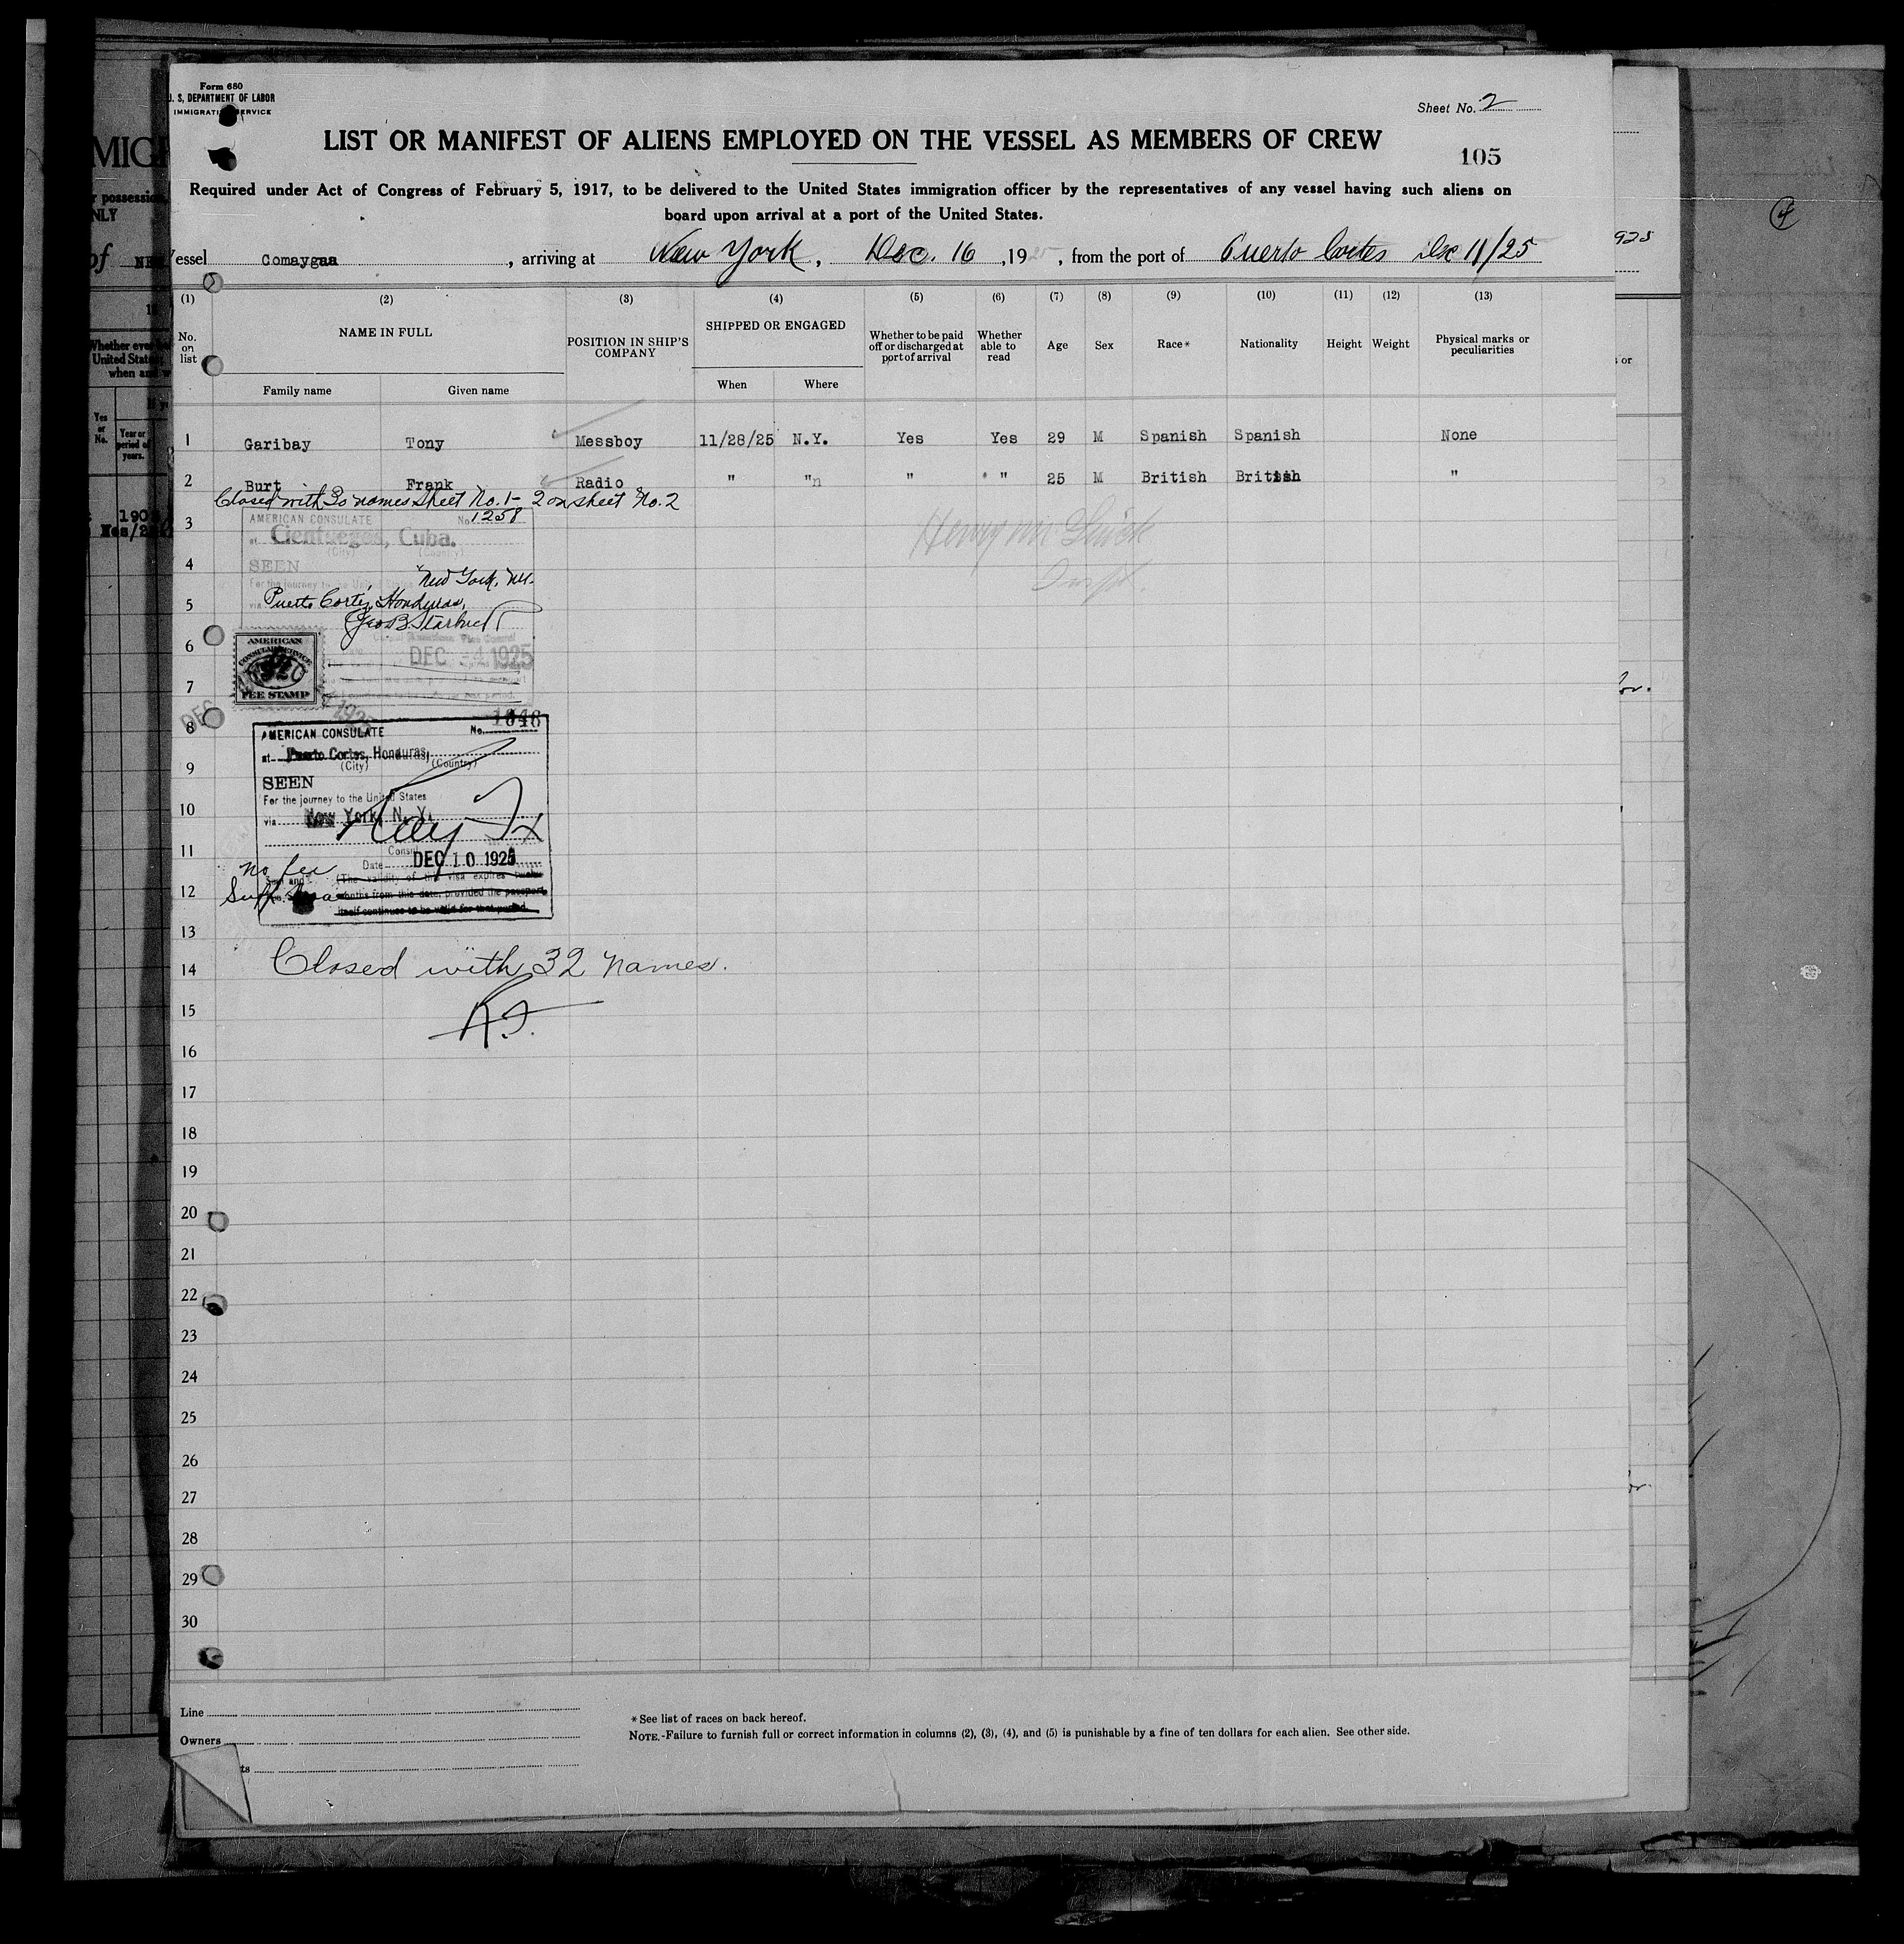 Form 680
U. S. DEPARTMENT OF LABOR
IMMIGRATION SERVICE
Sheet No. 2
LIST OR MANIFEST OF ALIENS EMPLOYED ON THE VESSEL AS MEMBERS OF CREW
105
Required under Act of Congress of February 5, 1917, to be delivered to the United States immigration officer by the representatives of any vessel having such aliens on
board upon arrival at a port of the United States.
Vessel Comaygua, arriving at New York, Dec. 16, 1925, from the port of Puerto Cortes Dec 11/25
(1) (2) (3) (4) (5) (6) (7) (8) (9) (10) (11) (12) (13)
No. on list NAME IN FULL POSITION IN SHIP'S COMPANY SHIPPED OR ENGAGED Whether to be paid off or discharged at port of arrival Whether able to read Age Sex Race* Nationality Height Weight Physical marks or peculiarities
Family name Given name When Where
1 Garibay Tony Messboy 11/28/25 N.Y. Yes Yes 29 M Spanish Spanish None
2 Burt Frank Radio " "n " " 25 M British British "
Closed with 30 names sheet No. 1 - 2 on sheet No. 2
3
AMERICAN CONSULATE No. 1258
at Cienfuegos, Cuba.
(City) (Country)
4
SEEN
For the journey to the United States New York, N.Y.
5
via Puerto Cortéz, Honduras,
6
AMERICAN
CONSULAR SERVICE
$2
FEE STAMP
DEC -4 1925
7
8
AMERICAN CONSULATE No. 1646
at Puerto Cortes, Honduras,
(City) (Country)
9
SEEN
For the journey to the United States
10
via New York, N. Y.
11
Consul
Date DEC 10 1925
no fee
(The validity of this visa expires twelve
12
months from this date, provided the passport
itself continues to be valid for that period.
13
14 Closed with 32 names.
15
16
17
18
19
20
21
22
23
24
25
26
27
28
29
30
Line
Owners
*See list of races on back hereof.
NOTE.-Failure to furnish full or correct information in columns (2), (3), (4), and (5) is punishable by a fine of ten dollars for each alien. See other side.